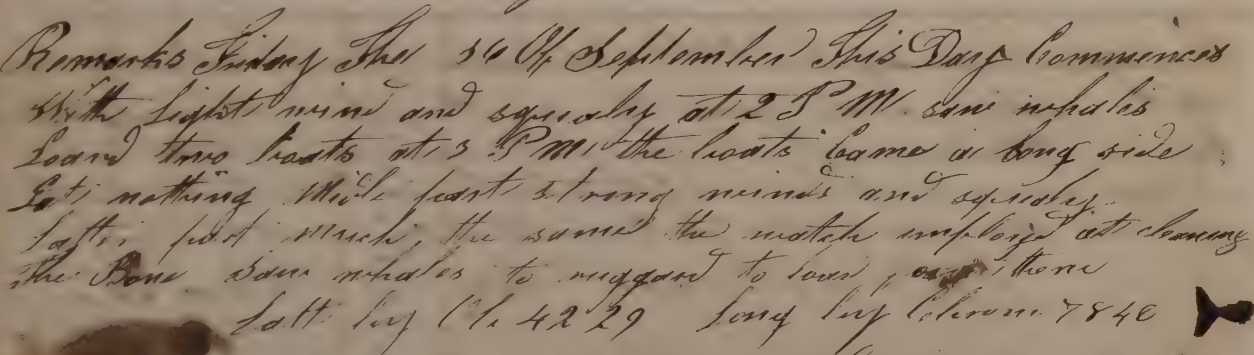 Remarks Friday The 16 Of September This Day Commences
With Light wind and squaly at 2 P M saw whales
Loard two boats at 3 P M the boats Came a long side
Got nothing Midle part strong winds and squaly
Latter part much the same the watch employed at cleaning
the Bone saw whales to ruggard to loar for them
Latt by Ob 42 29 Long by Chrom 78 40